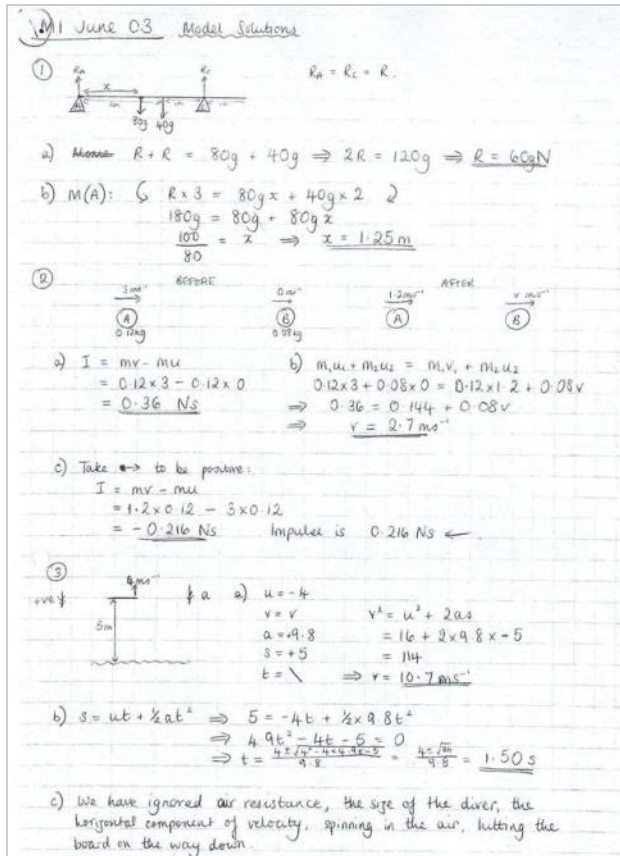 M1 June 03 Model Solutions
①
R_A R_C R_A = R_C = R.
x
80g 40g
a) R + R = 80g + 40g ⇒ 2R = 120g ⇒ R = 60gN
b) M(A): R × 3 = 80gx + 40g × 2
180g = 80g + 80gx
100/80 = x ⇒ x = 1.25m
②
BEFORE AFTER
3ms⁻¹ 0ms⁻¹ 1.2ms⁻¹ v ms⁻¹
A B A B
0.12kg 0.08kg
a) I = mv - mu b) m₁u₁ + m₂u₂ = m₁v₁ + m₂u₂
= 0.12×3 - 0.12×0 0.12×3 + 0.08×0 = 0.12×1.2 + 0.08v
= 0.36 Ns ⇒ 0.36 = 0.144 + 0.08v
⇒ v = 2.7ms⁻¹
c) Take → to be positive:
I = mv - mu
= 1.2×0.12 - 3×0.12
= -0.216 Ns Impulse is 0.216 Ns ←.
③
4ms⁻¹ a a) u = -4
+ve v = v v² = u² + 2as
5m a = +9.8 = 16 + 2×9.8×-5
s = +5 = 114
t = \ ⇒ v = 10.7ms⁻¹
b) s = ut + ½at² ⇒ 5 = -4t + ½×9.8t²
⇒ 4.9t² - 4t - 5 = 0
⇒ t = = = 1.50s
c) We have ignored air resistance, the size of the diver, the
horizontal component of velocity, spinning in the air, hitting the
board on the way down.